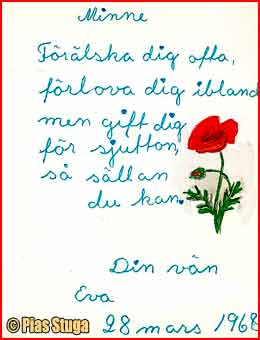 Minne
Förälska dig ofta,
förlova dig ibland
men gift dig
för sjutton,
så sällan
du kan.
Din vän
Eva
28 mars 1968
© Pias Stuga